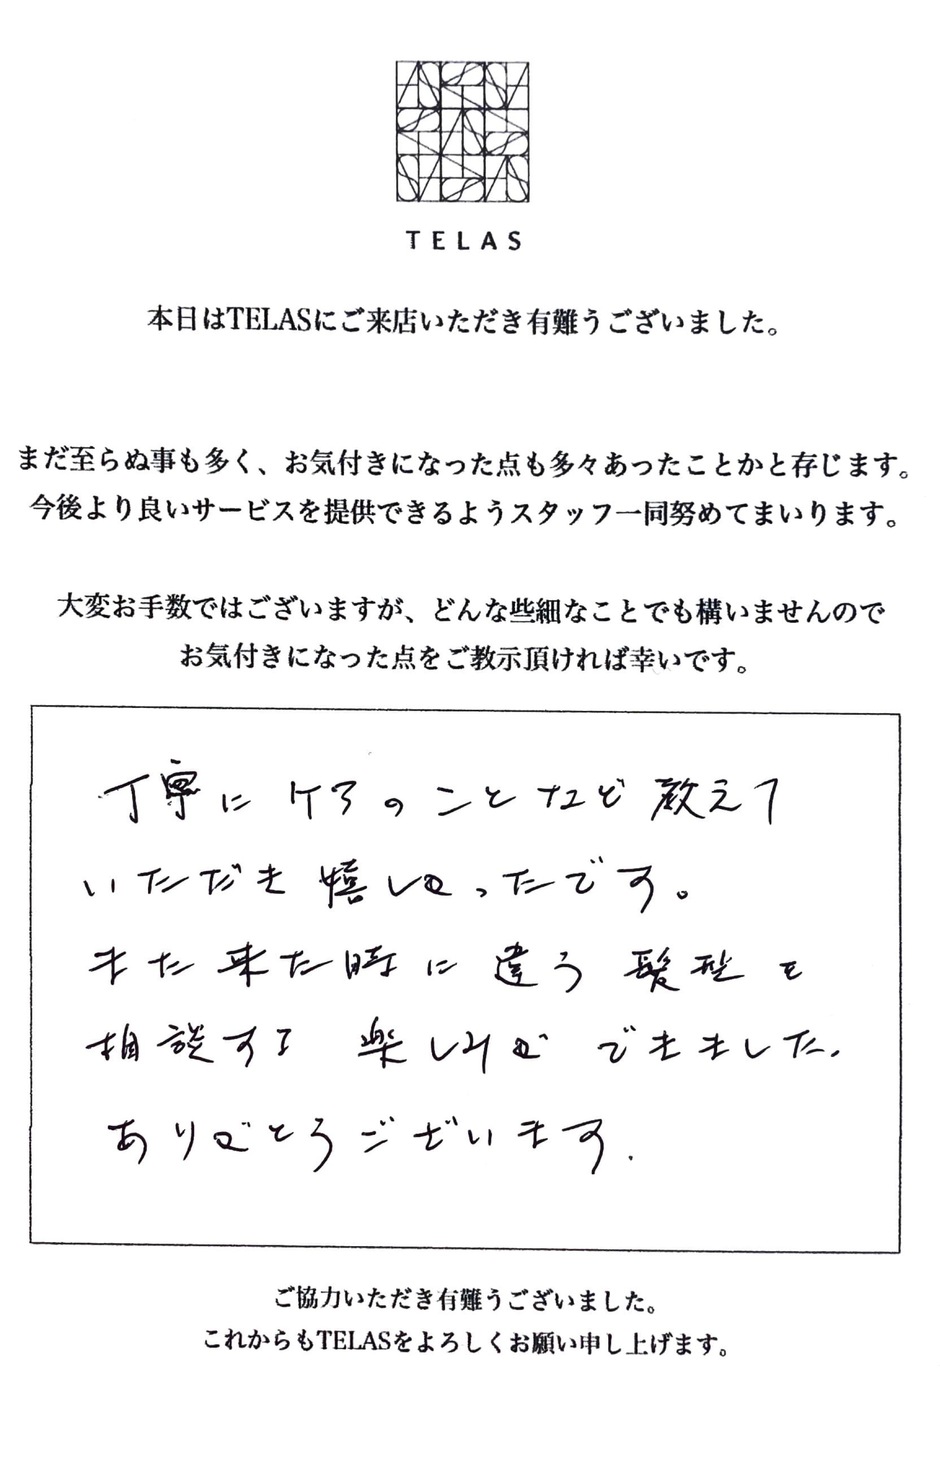 TELAS
本日はTELASにご来店いただき有難うございました。
まだ至らぬ事も多く、お気付きになった点も多々あったことかと存じます。
今後より良いサービスを提供できるようスタッフ一同努めてまいります。
大変お手数ではございますが、どんな些細なことでも構いませんので
お気付きになった点をご教示頂ければ幸いです。
丁寧にケアのことなど教えて
いただき嬉しかったです。
また来た時に違う髪型を
相談する楽しみができました.
ありがとうございます.
ご協力いただき有難うございました。
これからもTELASをよろしくお願い申し上げます。